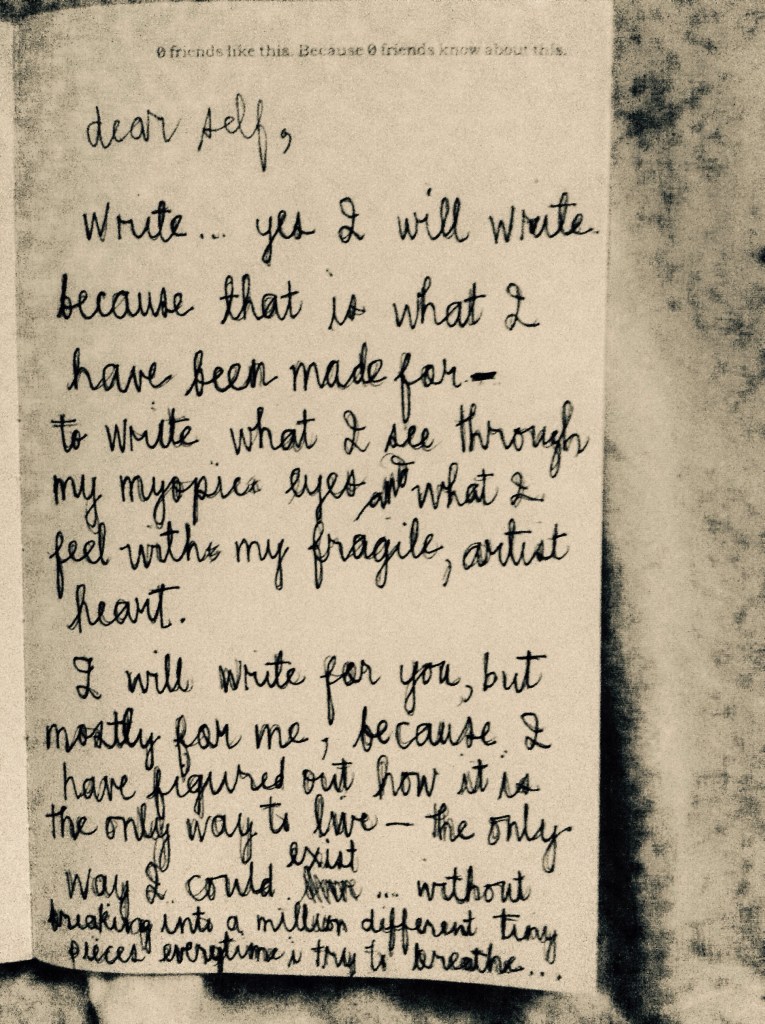 0 friends like this. Because 0 friends know about this.
dear self,
Write... yes I will write
because that is what I
have been made for -
to write what I see through
my myopic eyes and what I
feel with my fragile, artist
heart.
I will write for you, but
mostly for me, because I
have figured out how it is
the only way to live - the only
way I could exist ... without
breaking into a million different tiny
pieces everytime i try to breathe...